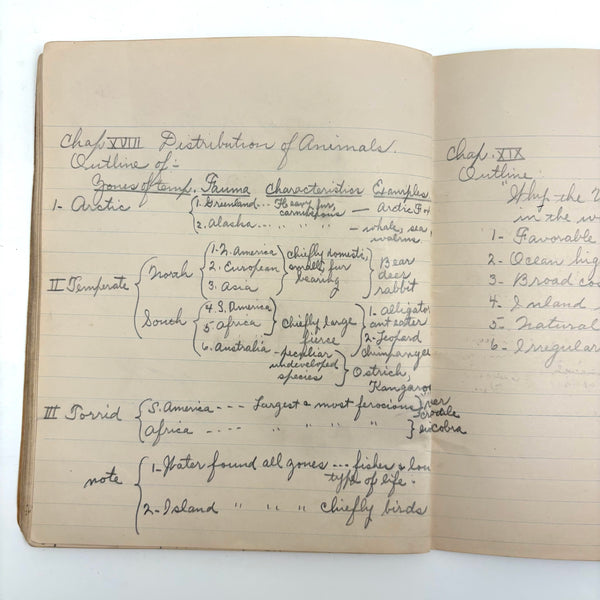 Chap XVIII Distribution of Animals.
Outline of:-
Zones of temp. Fauna Characteristics Examples
1- Arctic { 1. Greenland... Heavy fur, carniverous — Arctic Fox
2. Alaska... " " " " — whale, sea, walrus
II Temperate { North { 1. N. America
2. European
3. Asia } chiefly domestic, small, fur bearing } Bear
deer
rabbit
South { 4. S. America
5. Africa } chiefly large fierce { 1- Alligator
ant eater
2- Leopard
chimpanzee
6. Australia - peculiar undeveloped species } Ostrich,
Kangaroo
III Torrid { S. America --- Largest & most ferocious }
Africa - ... " " " " } Cobra
note { 1- Water found all zones ... fisher & low
type of life.
2- Island " " " chiefly birds
Chap. XIX
Outline:
"Why the
in the
1- Favorable
2- Ocean hig
3- Broad coa
4- Inland
5- Natural
6- Irregular